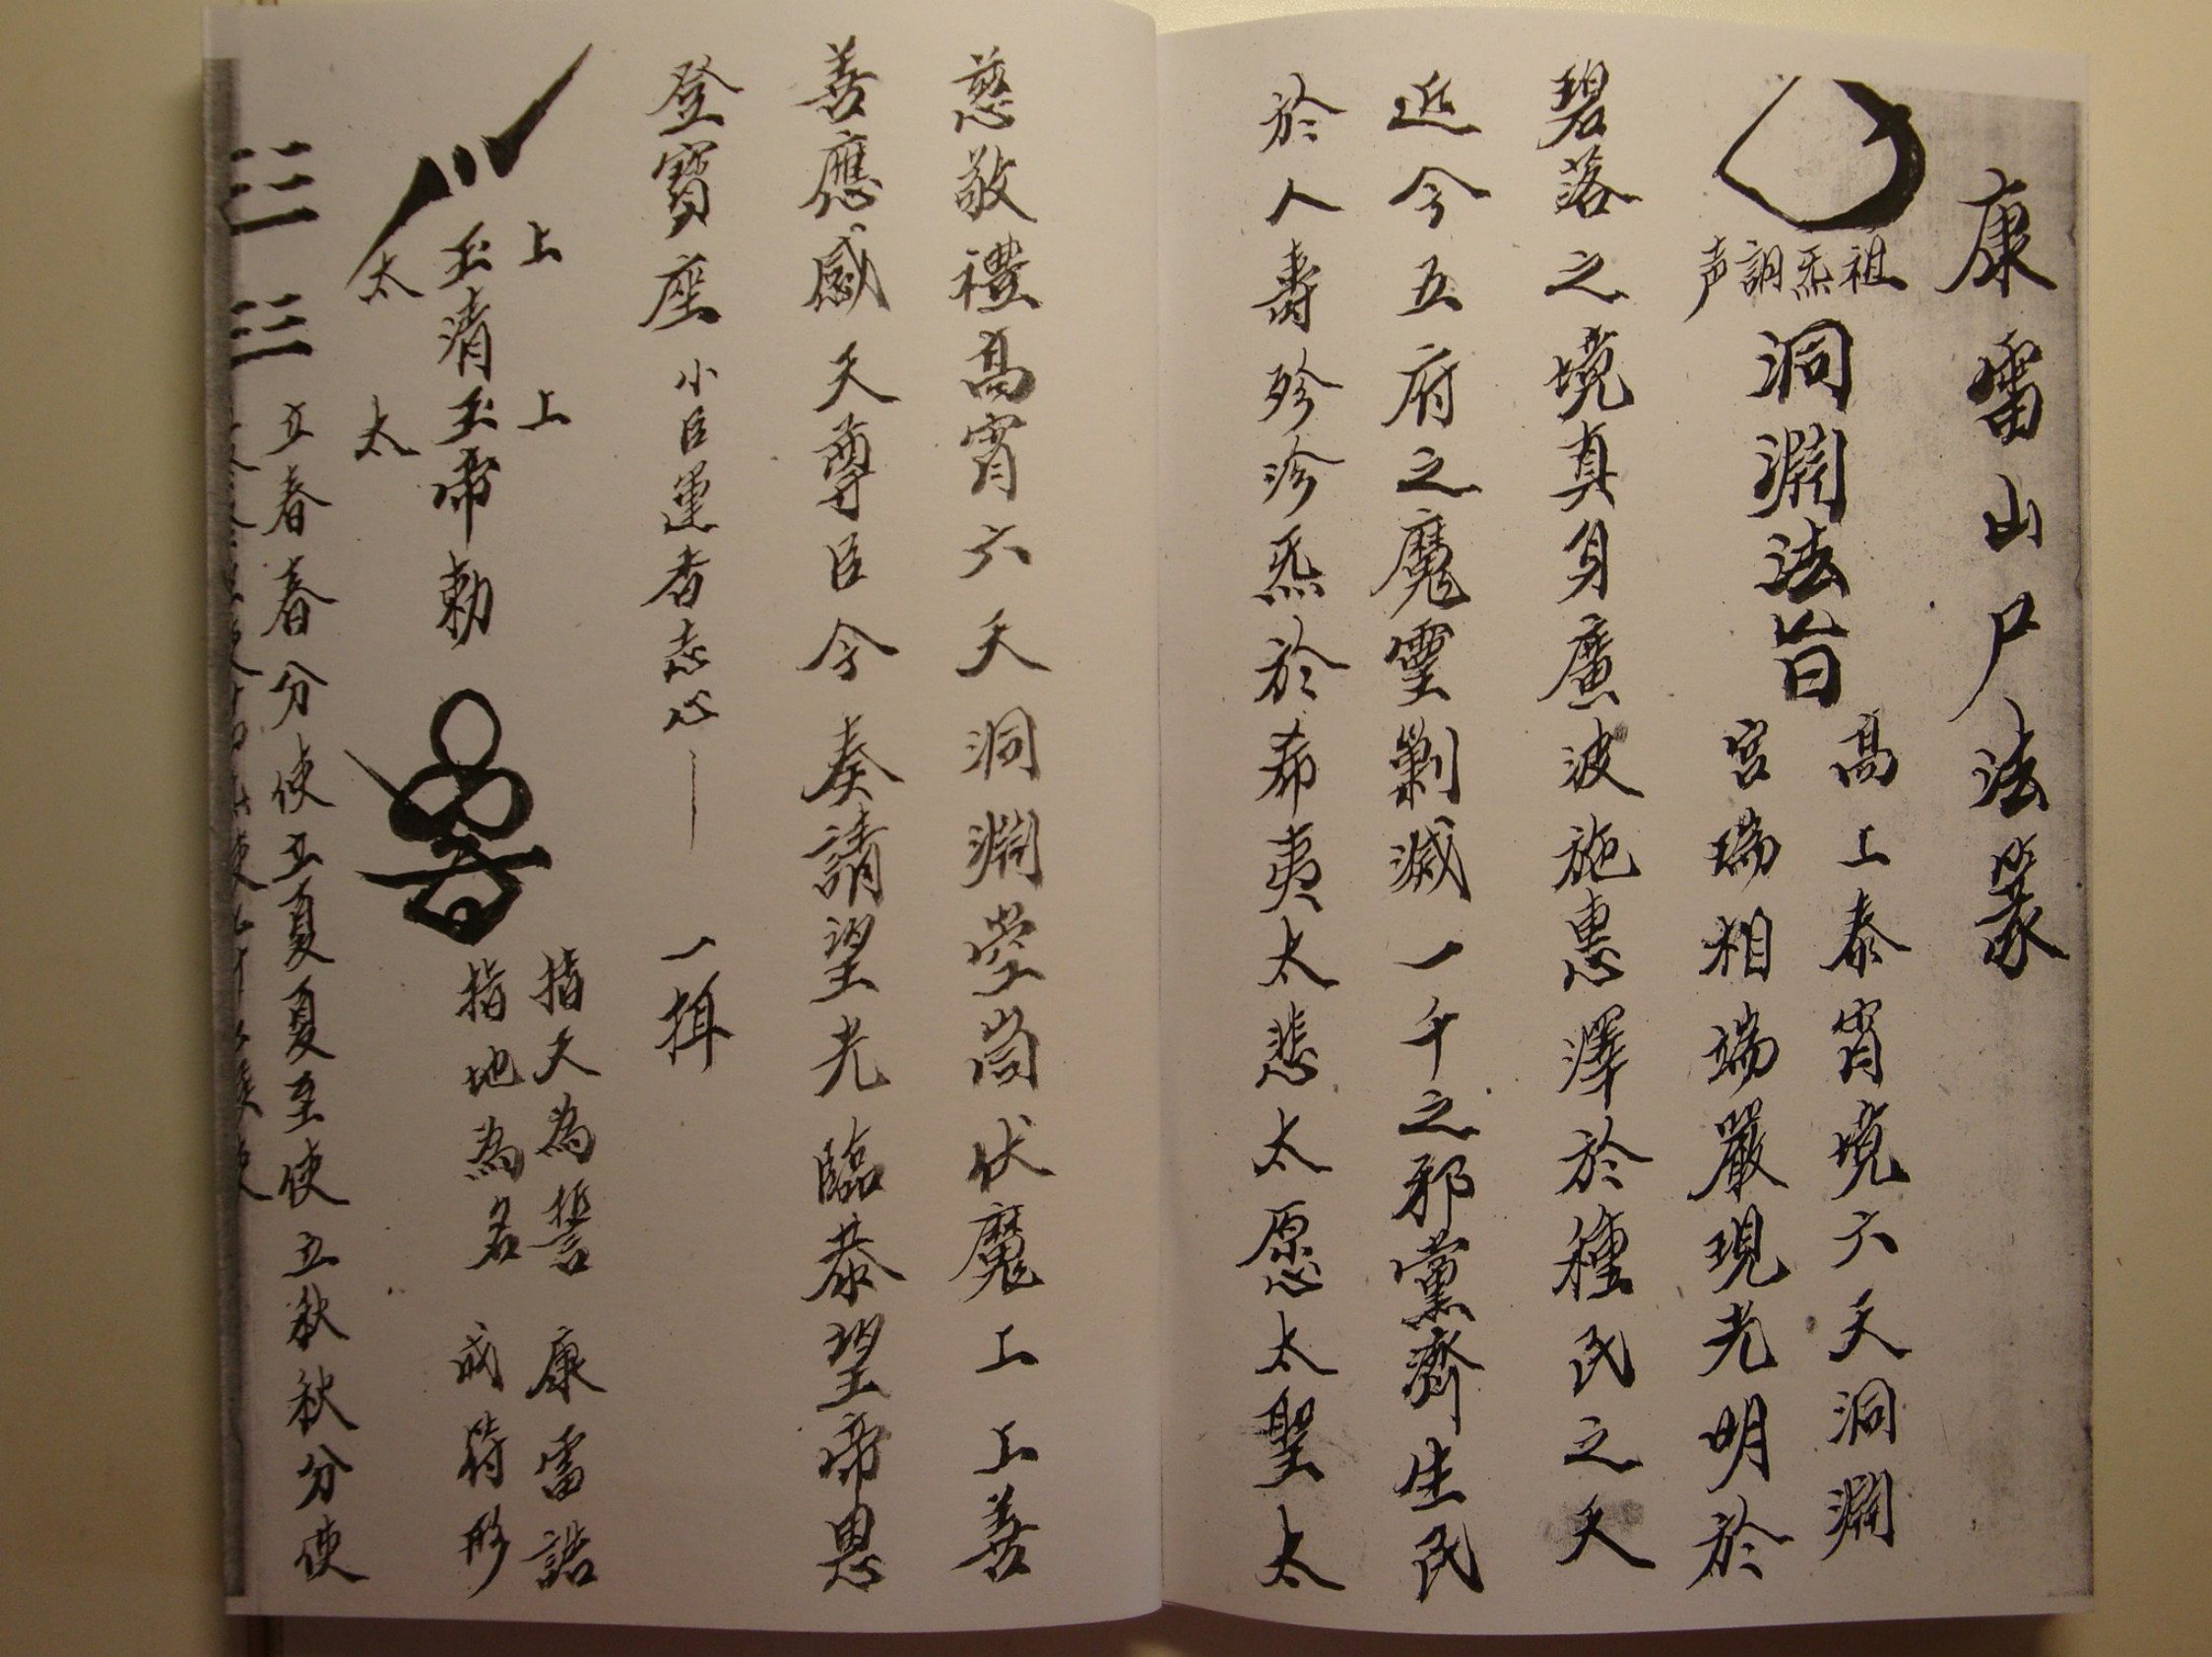 康雷山尸法篆
祖炁調声
洞淵法旨
高上泰宵境六天洞淵
宮瑞相端嚴現光明於
碧落之境真身廣波施惠澤於種民之天
近今五府之魔靈剿滅一千之邪黨濟生民
於人壽殄沴炁於希夷太悲太愿太聖太
慈敬禮高宵六天洞淵伏魔上上善
善應感天尊臣今奏請望光臨恭望帝恩
登寶座 小臣運香志心 一揖
上 上
玉清玉帝勅
太 太
指天為誓 康雷誥
指地為名 成符形
立春春分使立夏夏至使立秋秋分使